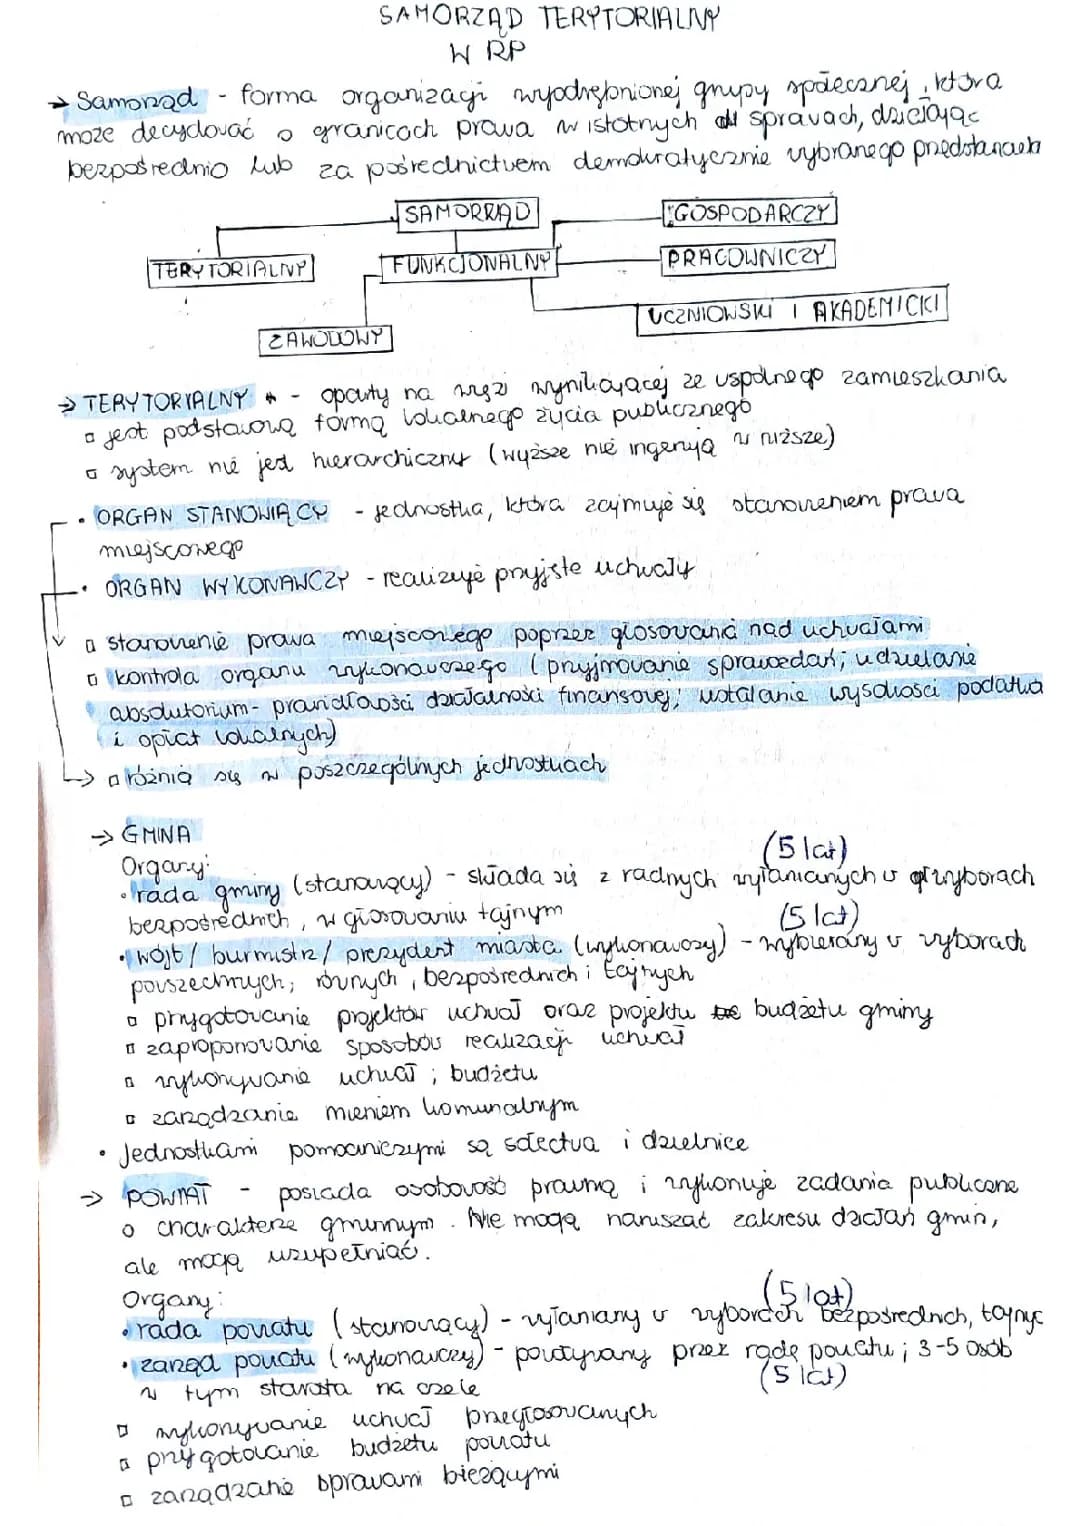 SAMORZĄD TERYTORIALNY
W RP
→ Samorząd - forma organizacji wyodrębnionej grupy społecznej, która
może decydować o granicach prawa w istotnych sprawach, działając
bezpośrednio lub za pośrednictwem demokratycznie wybranego przedstawiciela
SAMORRĄD
GOSPODARCZY
TERYTORIALNY
FUNKCJONALNY
PRACOWNICZY
UCZNIOWSKI I AKADEMICKI
ZAWODOWY
→ TERYTORIALNY - oparty na więzi wynikającej ze wspólnego zamieszkania
▫ jest podstawową formą lokalnego życia publicznego
▫ system nie jest hierarchiczny (wyższe nie ingerują w niższe)
• ORGAN STANOWIĄCY - jednostka, która zajmuje się stanowieniem prawa
miejscowego
• ORGAN WYKONAWCZY - realizuje przyjęte uchwały
▫ stanowienie prawa miejscowego poprzez głosowania nad uchwałami
▫ kontrola organu wykonawczego (przyjmowanie sprawozdań; udzielanie
absolutorium - prawidłowości działalności finansowej; ustalanie wysokości podatku
i opłat lokalnych)
▫ różnią się w poszczególnych jednostkach
→ GMINA
Organy: (5 lat)
• rada gminy (stanowiący) - składa się z radnych wyłanianych w wyborach
bezpośrednich, w głosowaniu tajnym (5 lat)
• wójt / burmistrz / prezydent miasta (wykonawczy) - wybierany w wyborach
powszechnych, równych, bezpośrednich i tajnych
▫ przygotowanie projektów uchwał oraz projektu budżetu gminy
▫ zaproponowanie sposobów realizacji uchwał
▫ wykonywanie uchwał; budżetu
▫ zarządzanie mieniem komunalnym
• Jednostkami pomocniczymi są sołectwa i dzielnice
→ POWIAT - posiada osobowość prawną i wykonuje zadania publiczne
o charakterze gminnym. Nie mogą naruszać zakresu działań gmin,
ale mogą uzupełniać.
Organy: (5 lat)
• rada powiatu (stanowiący) - wyłaniany w wyborach bezpośrednich, tajnyc
• zarząd powiatu (wykonawczy) - powoływany przez radę powiatu; 3-5 osób
w tym starosta na czele (5 lat)
▫ wykonywanie uchwał przegłosowanych
▫ przygotowanie budżetu powiatu
▫ zarządzanie sprawami bieżącymi